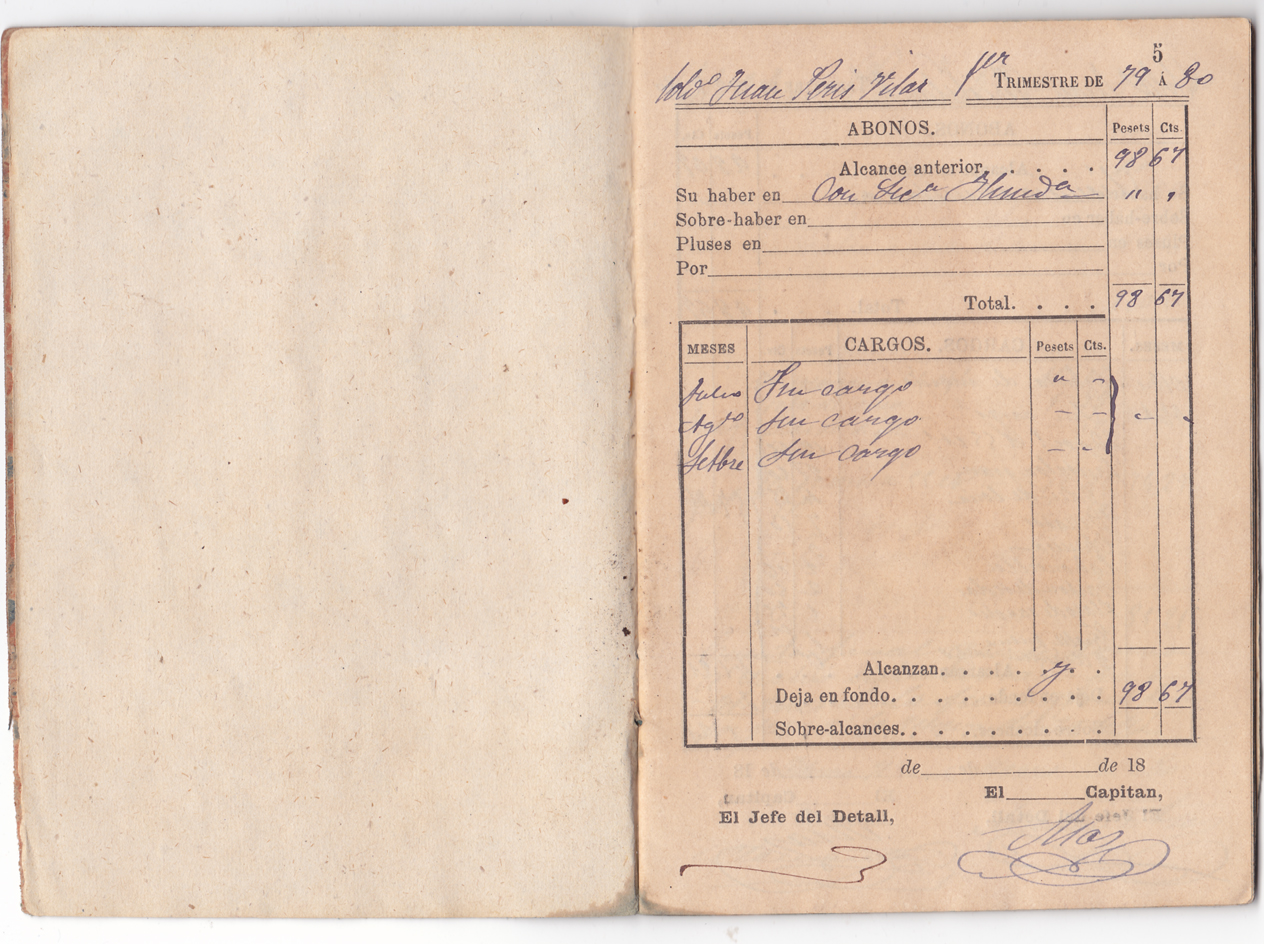 5
Sold.º Juan Peris Vilar 1er TRIMESTRE DE 79 Á 80
ABONOS. Pesets Cts.
Alcance anterior. . . . . 98 67
Su haber en Con lic.ª Ilimida " "
Sobre-haber en
Pluses en
Por
Total. . . . 98 67
MESES CARGOS. Pesets Cts.
Julio Sin cargo " -
Agto Sin cargo - - - -
Setbre Sin cargo - -
Alcanzan. . . . . y. .
Deja en fondo. . . . . . . . . 98 67
Sobre-alcances. . . . . . . .
de de 18
El Capitan,
El Jefe del Detall,